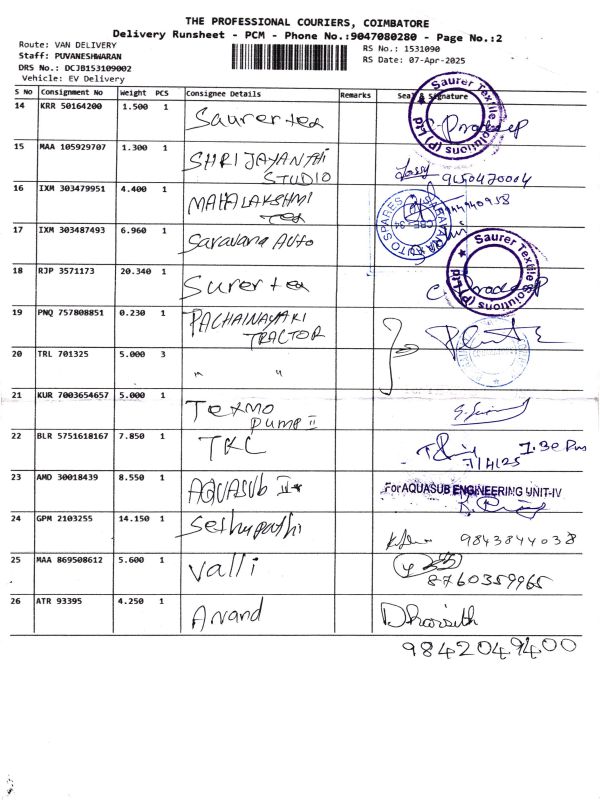 THE PROFESSIONAL COURIERS, COIMBATORE
Delivery Runsheet - PCM - Phone No.:9047080280 - Page No.:2
Route: VAN DELIVERY
RS No.: 1531090
Staff: PUVANESHWARAN
RS Date: 07-Apr-2025
DRS No.: DCJB153109002
Vehicle: EV Delivery
S No Consignment No Weight PCS Consignee Details Remarks Seal & Signature
14 KRR 50164200 1.500 1 Saurer tex
Saurer Textile Solutions (P) Ltd
C. Pradeep
15 MAA 105929707 1.300 1 SHRI JAYANTHI
STUDIO
16 IXM 303479951 4.400 1 MAHALAKSHMI
Tex
17 IXM 303487493 6.960 1 Saravana Auto
SARAVANA AUTO SPARES
CBE-34
18 RJP 3571173 20.340 1 Surer tex
Saurer Textile Solutions (P) Ltd
C. Pradeep
19 PNQ 757808851 0.230 1 PACHAINAYAKI
TRACTOR
20 TRL 701325 5.000 3 " "
21 KUR 7003654657 5.000 1 Texmo
Pump II
22 BLR 5751618167 7.850 1 TKC
7/4/25 1.30 Pm
23 AMD 30018439 8.550 1 AQUASUB II
For AQUASUB ENGINEERING UNIT-IV
24 GPM 2103255 14.150 1 Sethupathi
9843844038
25 MAA 869508612 5.600 1 Valli
8760359965
26 ATR 93395 4.250 1 Anand
9842049400